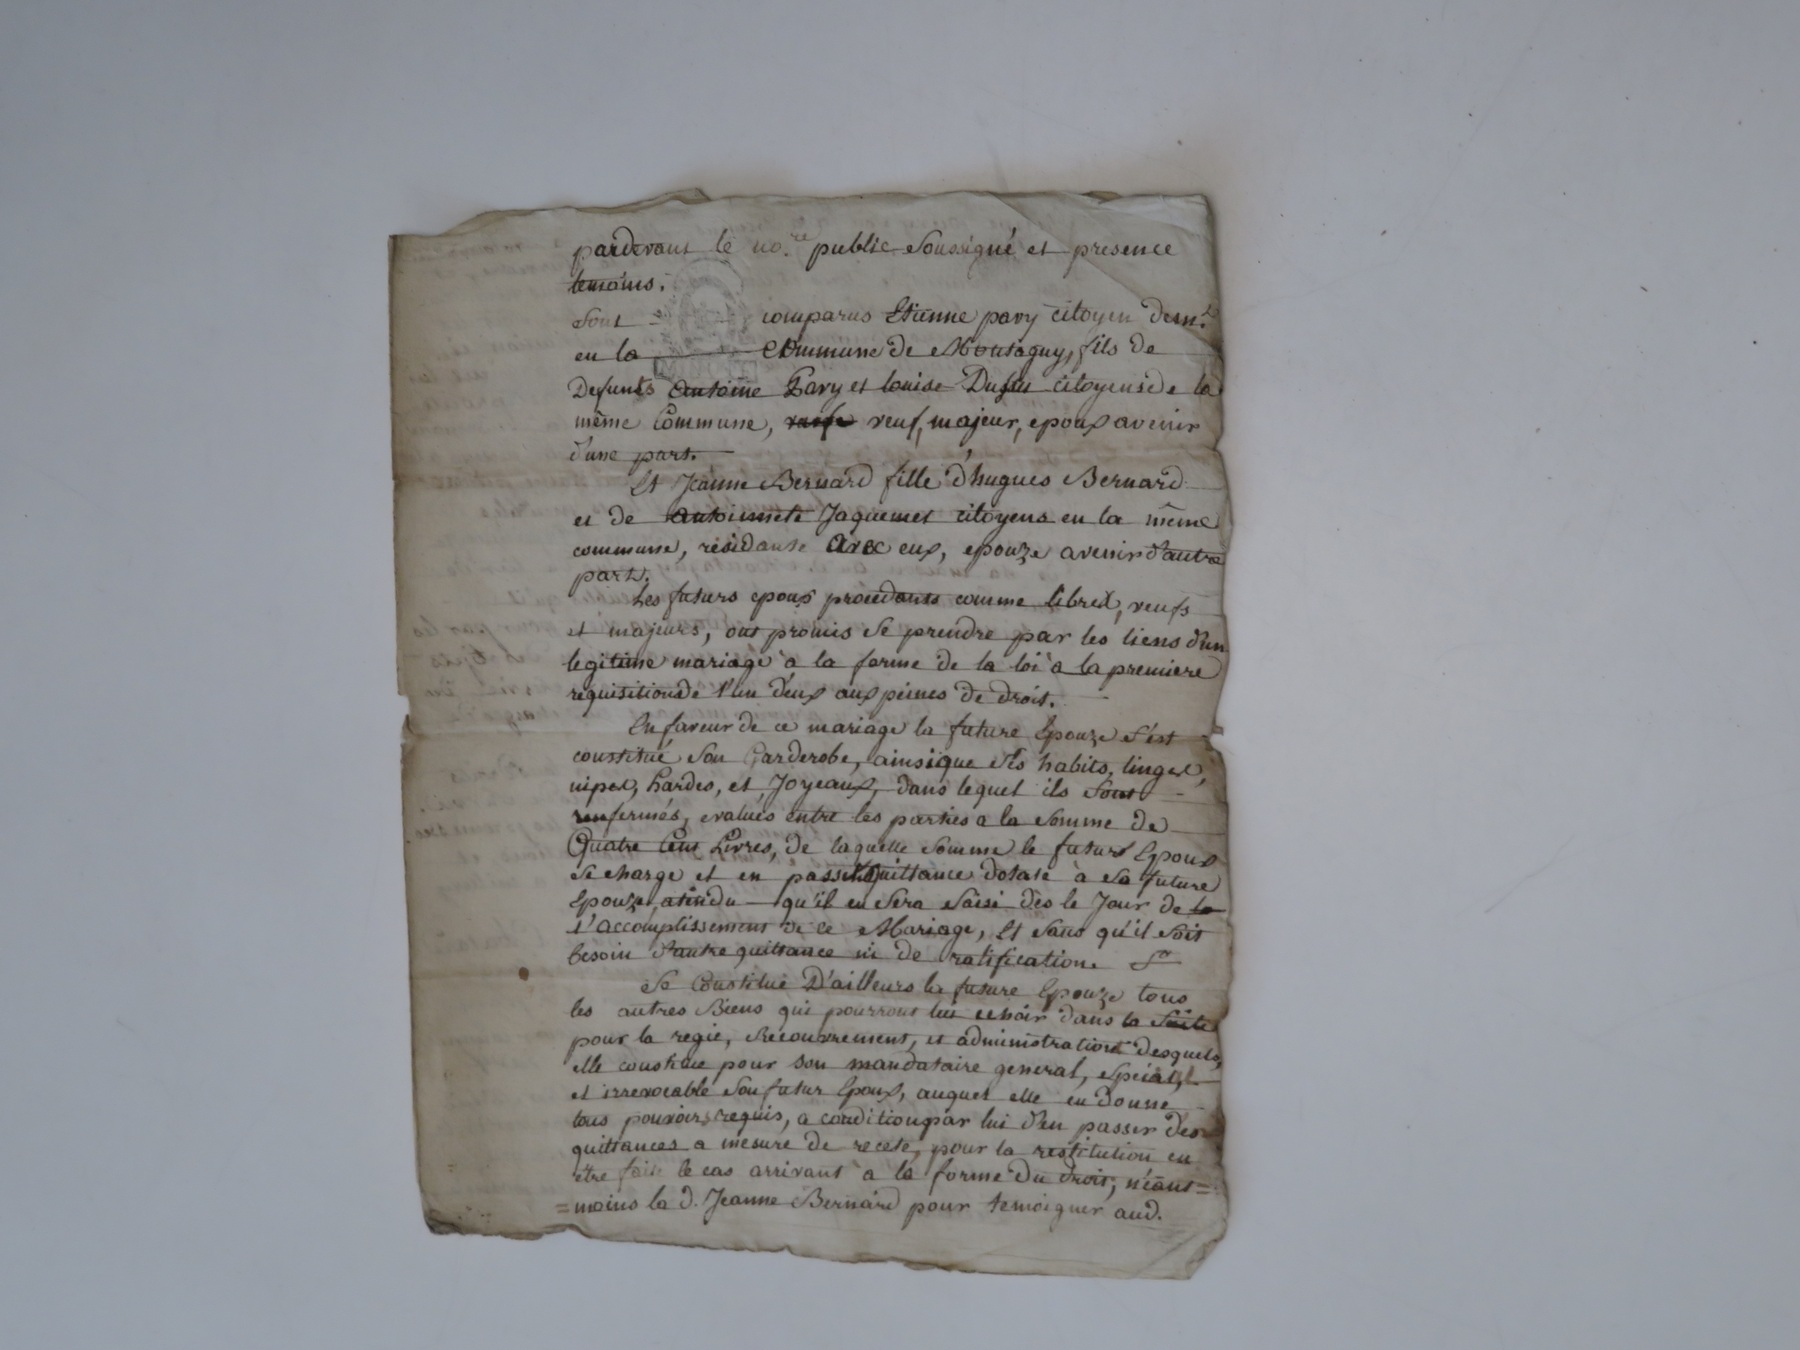 pardevant le no.re public soussigné et presence
temoins.
Sont comparus Etienne pavy citoyen dem.t
en la Commune de Montagny, fils de
Defunts Antoine Pavy et louise Dufus citoyens de la
même Commune, veuf, majeur, epoux avenir
d'une part.
Et Jeanne Bernard fille d'hugues Bernard
et de Antoinnete Jaquemet citoyens en la même
commune, résidante avec eux, epouze avenir d'autre
part.
Les futurs epoux procedants comme libres, veufs
et majeurs, ont promis se prendre par les liens d'un
legitime mariage à la forme de la loi à la premiere
requisition de l'un d'eux aux peines de droit.
En faveur de ce mariage la future Epouze s'est
constitué son Garderobe, ainsi que ses habits, linges,
nipes, hardes, et Joyeaux, dans lequel ils sont
renfermés, evalués entre les parties a la somme de
Quatre Cent Livres, de laquelle somme le futur Epoux
se charge et en passe quittance dotale à sa future
Epouze, atendu qu'il en sera saisi dès le Jour de la
l'accomplissement de ce Mariage, Et sans qu'il soit
besoin d'autre quittance ni de ratification.
Se Constitue D'ailleurs la future Epouze tous
les autres Biens qui pourront lui echoir dans la Suite
pour la regie, Recouvrement, et administration desquels,
elle constitue pour son mandataire general, special,
et irrevocable son futur Epoux, auquel elle en donne
tous pouvoirs requis, a condition par lui d'en passer des
quittances a mesure de recete, pour la restitution en
être faite le cas arrivant à la forme du droit, néant=
=moins la d. Jeanne Bernard pour temoigner aud.